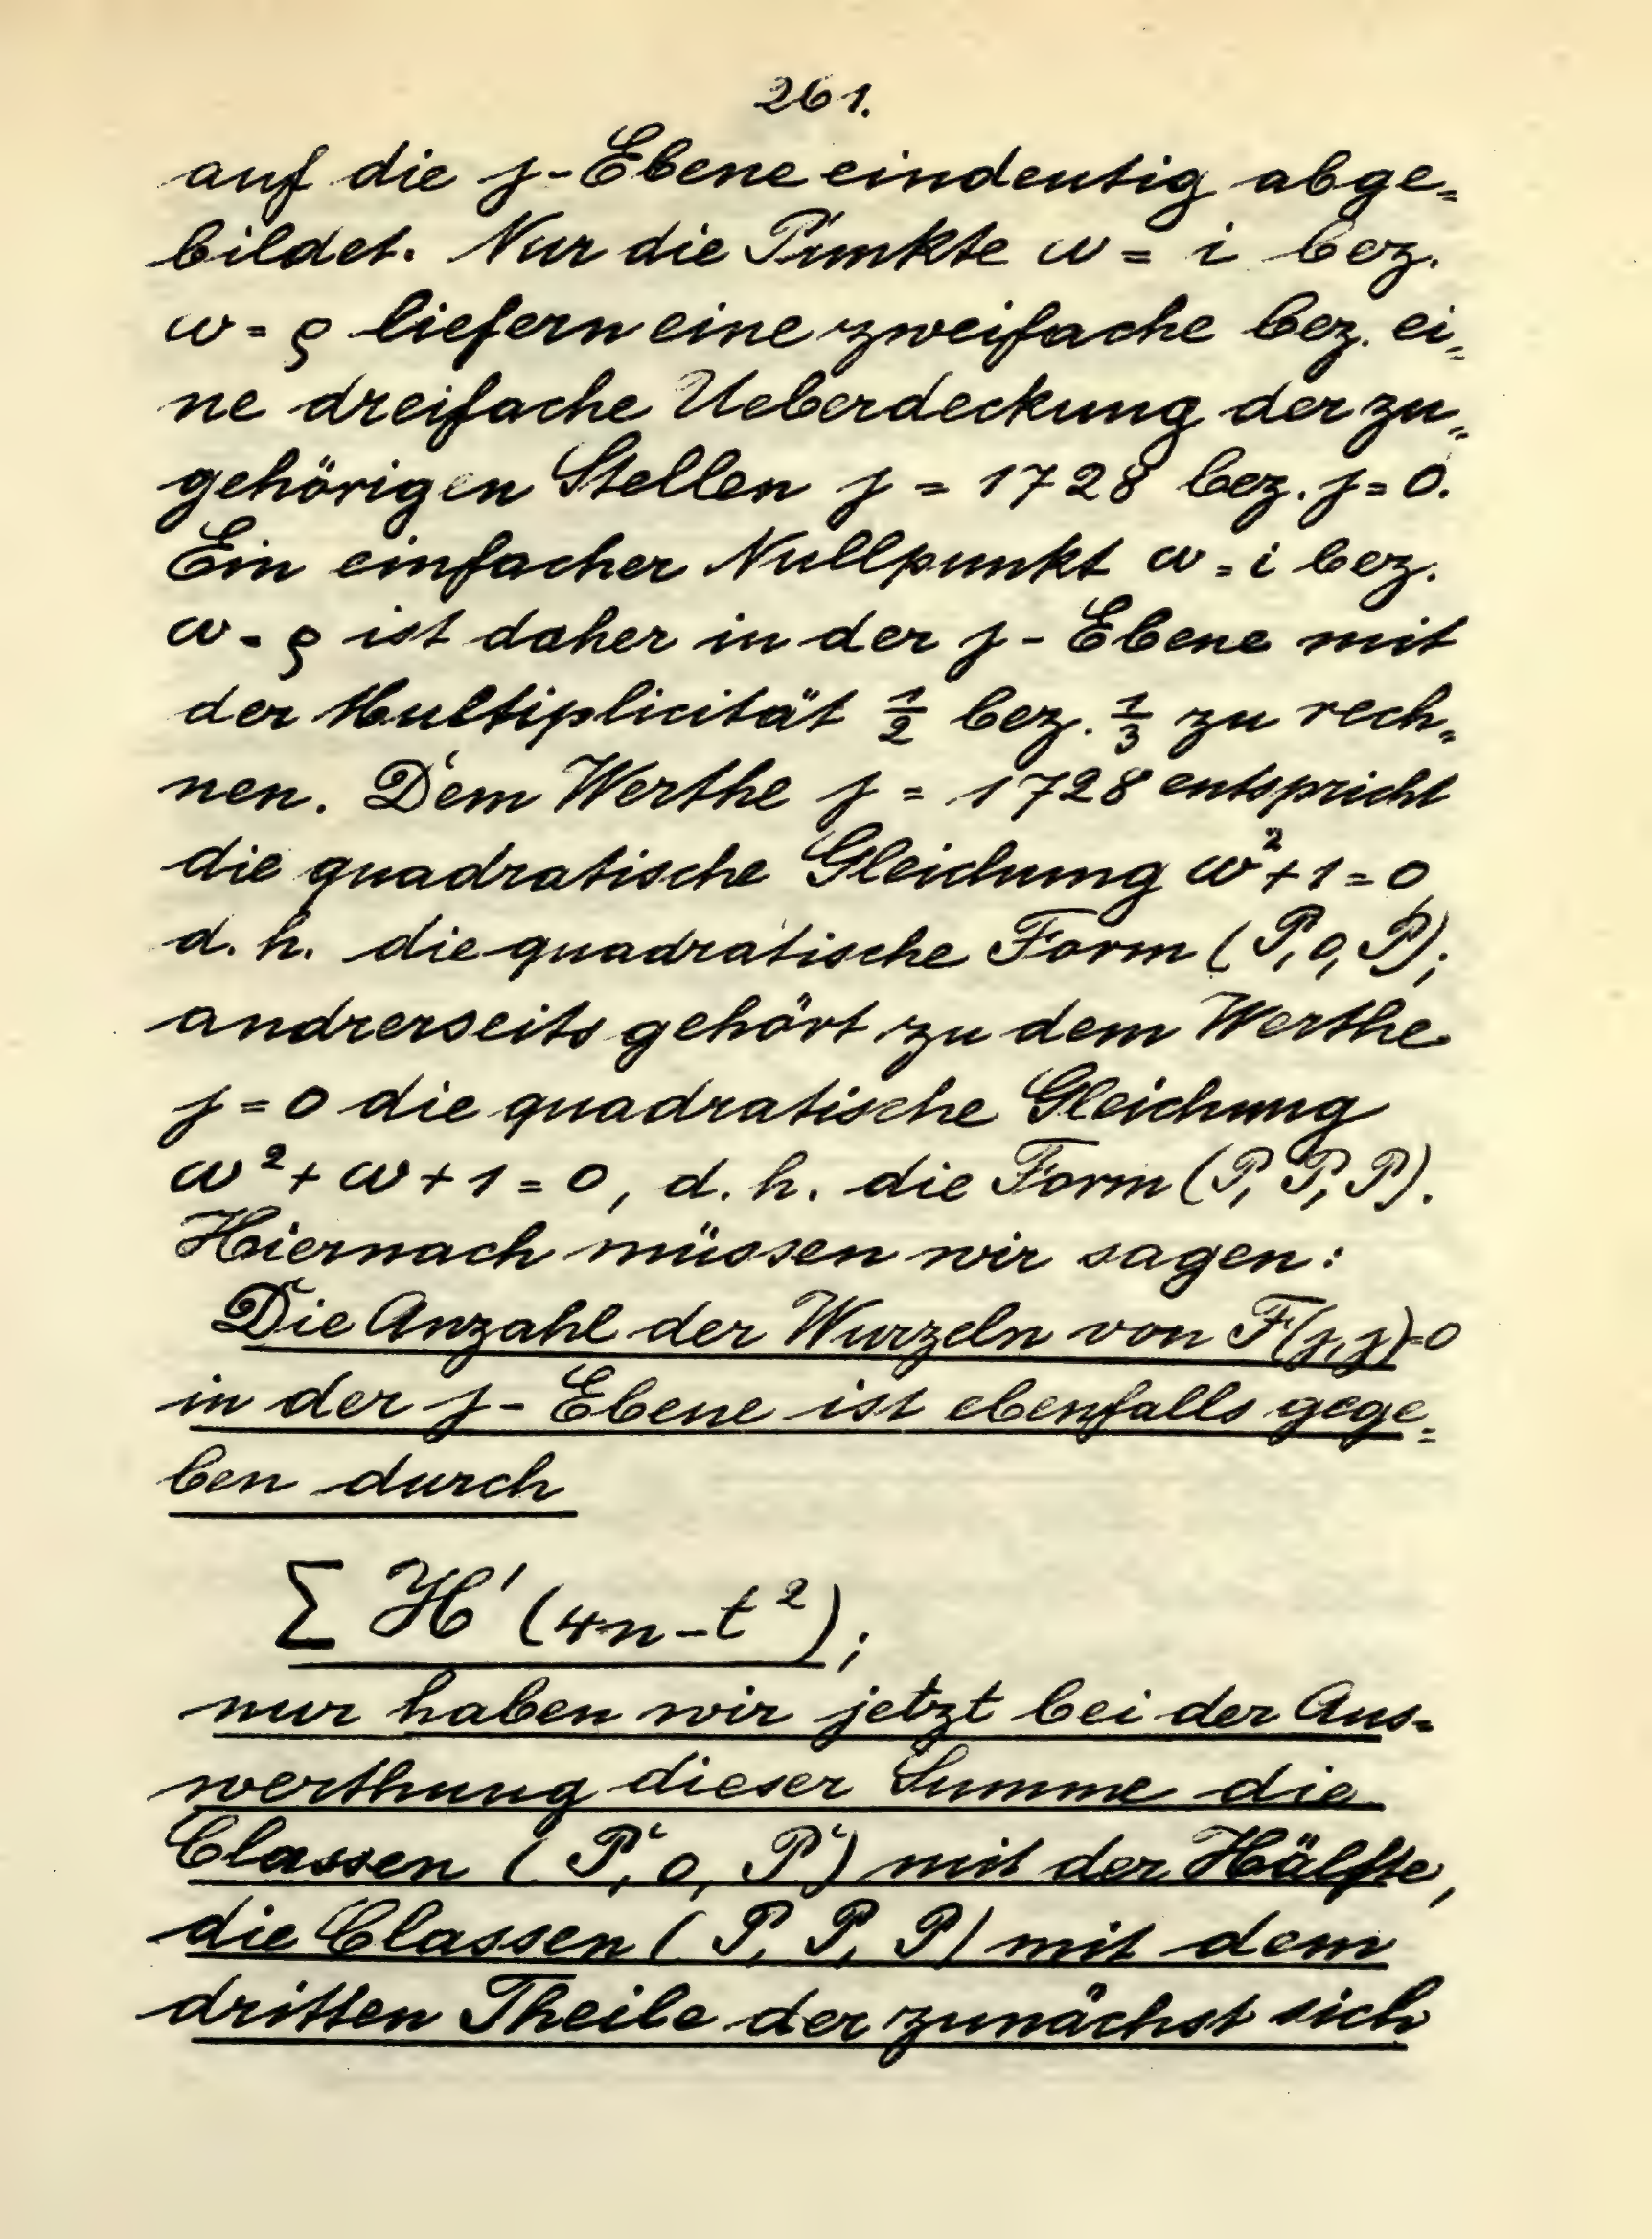 261.
auf die j-Ebene eindeutig abge=
bildet. Nur die Punkte ω = i bez.
ω = ϱ liefern eine zweifache bez. ei=
ne dreifache Ueberdeckung der zu=
gehörigen Stellen j = 1728 bez. j = 0.
Ein einfacher Nullpunkt ω = i bez.
ω = ϱ ist daher in der j-Ebene mit
der Multiplicität 1/2 bez. 1/3 zu rech=
nen. Dem Werthe j = 1728 entspricht
die quadratische Gleichung ω² + 1 = 0,
d. h. die quadratische Form (P, 0, P);
andrerseits gehört zu dem Werthe
j = 0 die quadratische Gleichung
ω² + ω + 1 = 0, d. h. die Form (P, P, P).
Hiernach müssen wir sagen:
Die Anzahl der Wurzeln von F(j, j) = 0
in der j-Ebene ist ebenfalls gege=
ben durch
∑ H'(4n - t²);
nur haben wir jetzt bei der Aus=
werthung dieser Summe die
Classen (P, 0, P) mit der Hälfte,
die Classen (P, P, P) mit dem
dritten Theile der zunächst sich